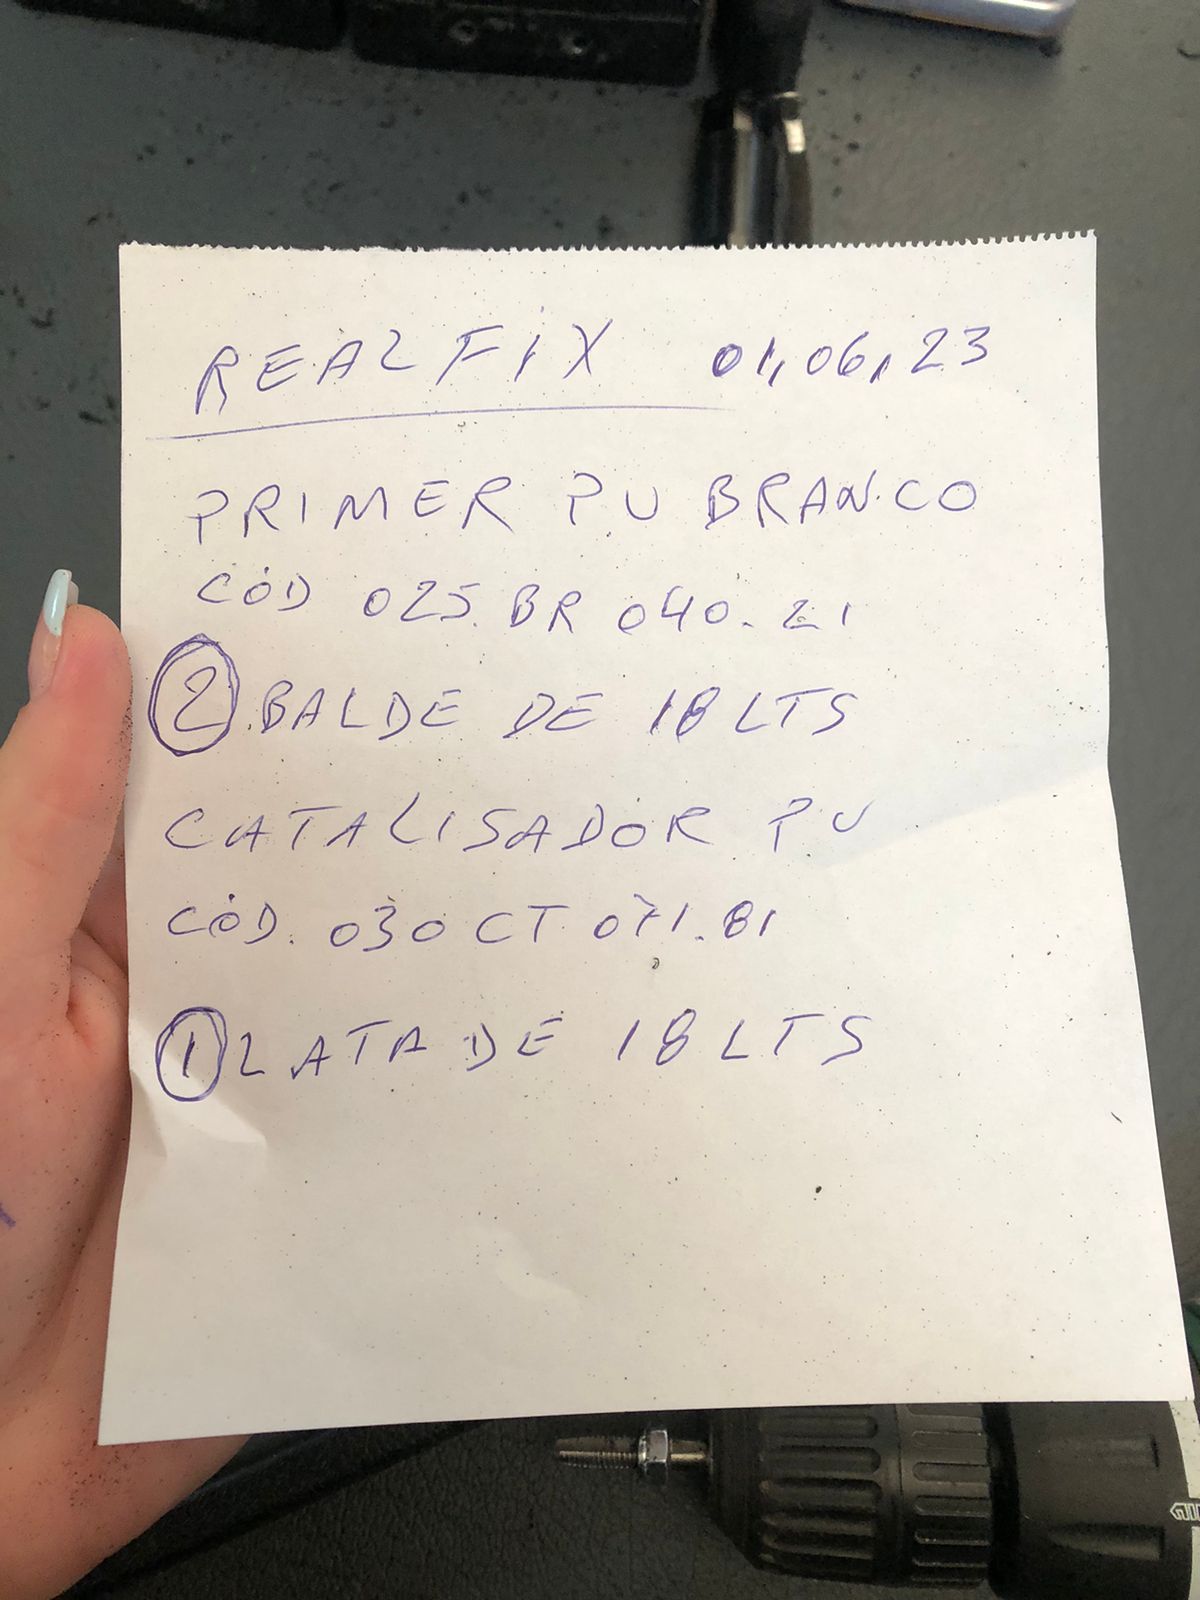 REALFIX 01,06,23
PRIMER PU BRANCO
CÓD 025.BR 040.21
2 BALDE DE 18 LTS
CATALISADOR PU
CÓD. 030 CT 071.81
1 LATA DE 18 LTS